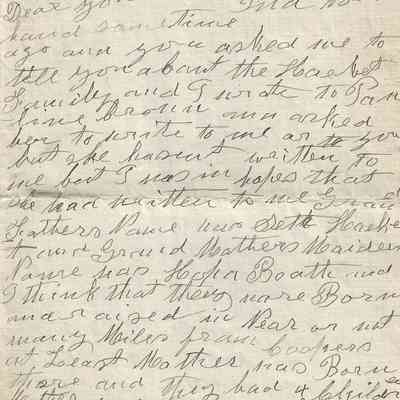 Dear
hand sometime
ago and you asked me to
tell you about the Hacket
Family and I wrote to Pan
line Brown an asked
her to write to me or to you
but she hasnt written to
me but I was in hopes that
she had written to me Grand
Fathers Name was Seth Hacke
t and Grand Mothers Maiden
Name was Boath and
I think that they ware Born
and raised in Near or not
many Miles from Coopers
at Least Mother was Born
there and they had 4 Childre